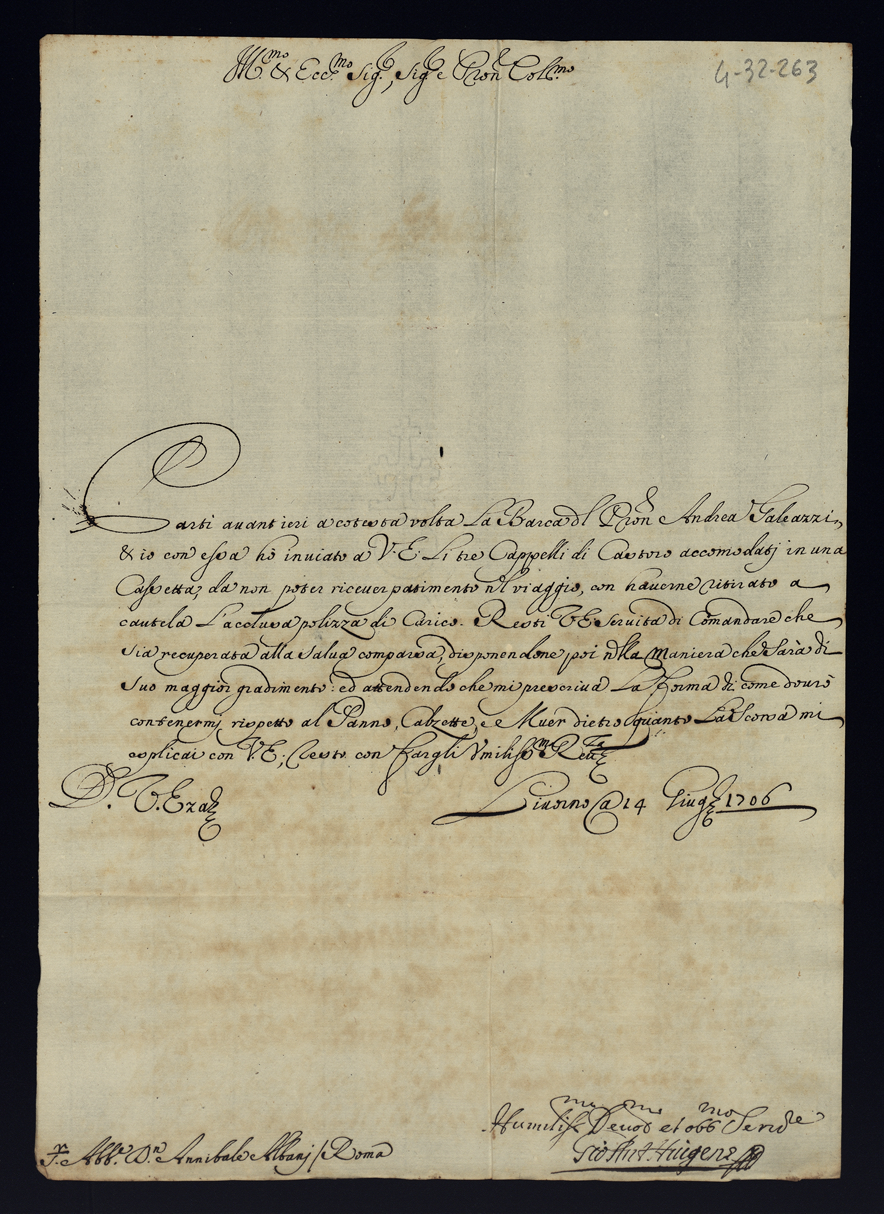 Ill.mo & Ecc.mo Sig.r, Sig.r e Pron Col.mo
4-32-263
Parti auant ieri a cotesta volta La Barca dl Pron Andrea Galeazzi,
& io con essa hò inuiato a V.E. Li tre Cappelli di Castoro accomodatj in una
Cassetta, da non poter riceuer patimento nl viaggio, con hauerne ritirato a
cautela L'acclusa polizza di Carico. Resti V.E. seruita di Comandare che
sia recuperata alla salua comparsa, disponendone poi nlla maniera che sarà di
suo maggior gradimento: ed attendendo che mi prescriua La forma di come dourò
contenermi rispetto al Panno, Calzette, e Muer dietro quanto La scorsa mi
esplicai con V.E.; Resto con fargli Vmiliss.ma Reu.za
D. V. Eza
Liuorno a 14 Giug.o 1706
Humiliss.mo Deuot.mo et obb.mo Seruid.re
Gio Hut. Huigens
S.r Abb.e Dn Annibale Albanj / Roma